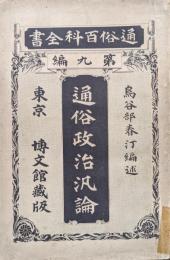 通俗百科全書
第九編
鳥谷部春汀編述
通俗政治汎論
東京 博文館藏版